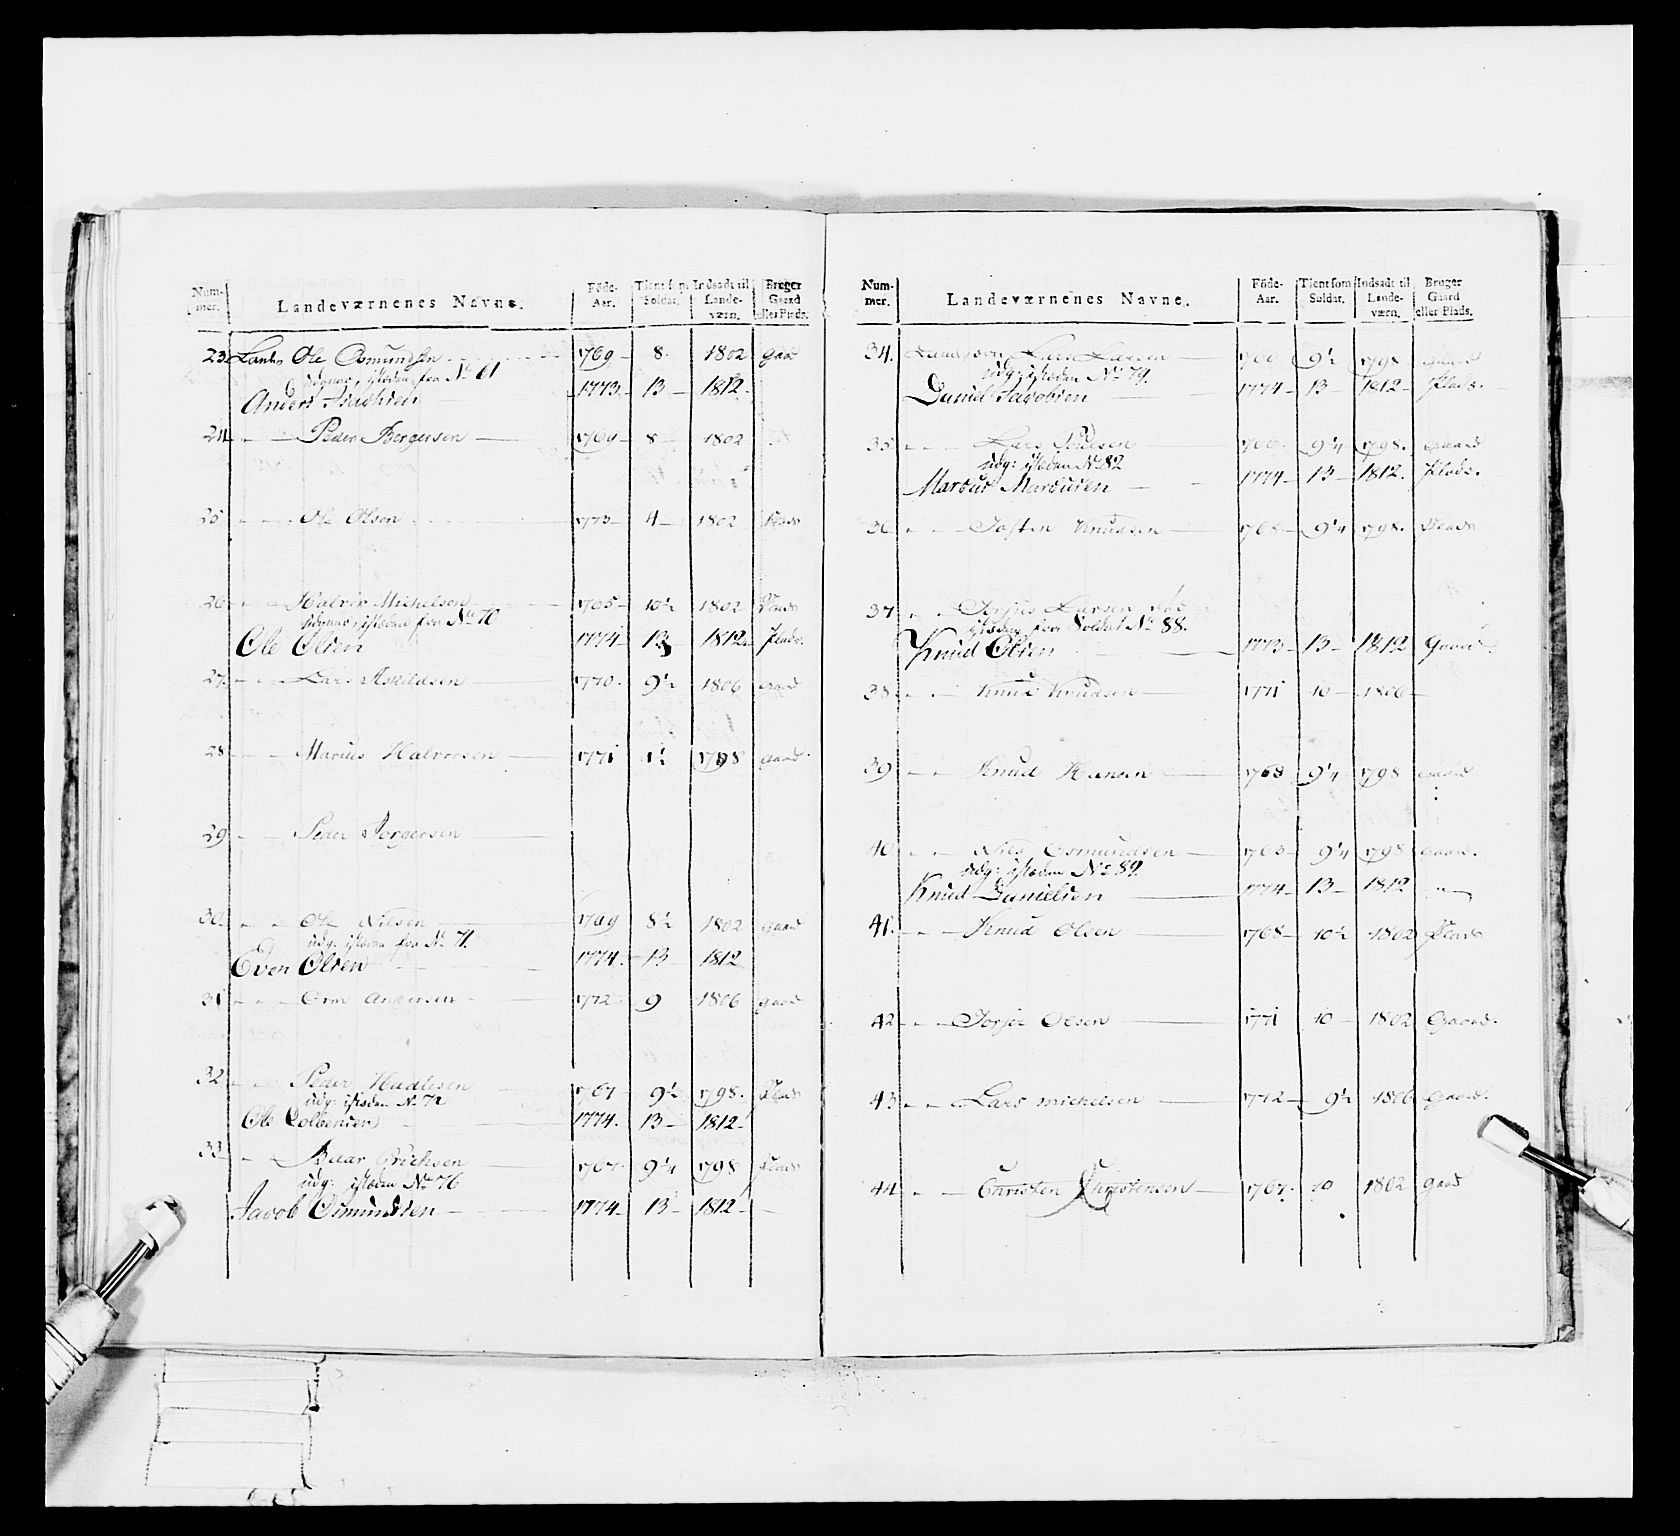 Num-mer. Landeværnenes Navne. Föde-Aar. Tient som Soldat. Indsadt til Lande-værn. Bruger Gaard eller Plads.
23. Ole Osmundsen 1769 8 1802 Gaard
istæden for No 61
Anders 1773 13 1812
24 Peder Børgersen 1769 8 1802
25 Ole Olsen 1773 4 1802 Plads
26 Halvor Michelsen 1765 10½ 1802 Plads
istæden for No 70
Ole Olsen 1774 13 1812 Plads
27 Lars Askildsen 1770 9½ 1806 Gaard
28 Marius Halvorsen 1771 1½ 1798 Gaard
29 Peder Jörgersen
30 Ole Nilsen 1769 8½ 1802 Gaard
udg: istæden for No 71.
Even Olsen 1774 13 1812
31 Orm Andersen 1772 9 1806 Gaard
32 Peder 1767 9½ 1798 Plads
udg: istæden No 72
Ole 1774 13 1812
33 Erichsen 1767 9¼ 1798 Plads
udg: istæden No 76
Jacob Osmundsen 1774 13 1812
Num-mer. Landeværnenes Navne. Föde-Aar. Tient som Soldat. Indsadt til Lande-værn. Bruger Gaard eller Plads.
34. Lars Larsen 1766 9½ 1798 Gaard
udg: istæden No 79.
Daniel Jacobsen 1774 13 1812 Plads
35 Lars 1766 9¼ 1798 Gaard
udg: istæden No 82
Marcus Marcusen 1774 13 1812 Plads.
36 Josten Knudsen 1768 9¼ 1798 Plads
37 Larsen
istæden for Soldat No 88.
Knud Olsen 1773 13 1812 Gaard
38 Knud Knudsen 1771 10 1806
39 Knud Hansen 1768 9¼ 1798 Gaard
40 Niels Osmundsen 1763 9¼ 1798 Gaard
udg: istæden No 89.
Knud Danielsen 1774 13 1812 "
41. Knud Olsen 1768 10½ 1802 Plads
42 Olsen 1771 10 1802 Gaard.
43 Lars Michelsen 1772 9½ 1806 Gaard.
44 Christen Christensen 1767 10 1802 Gaard